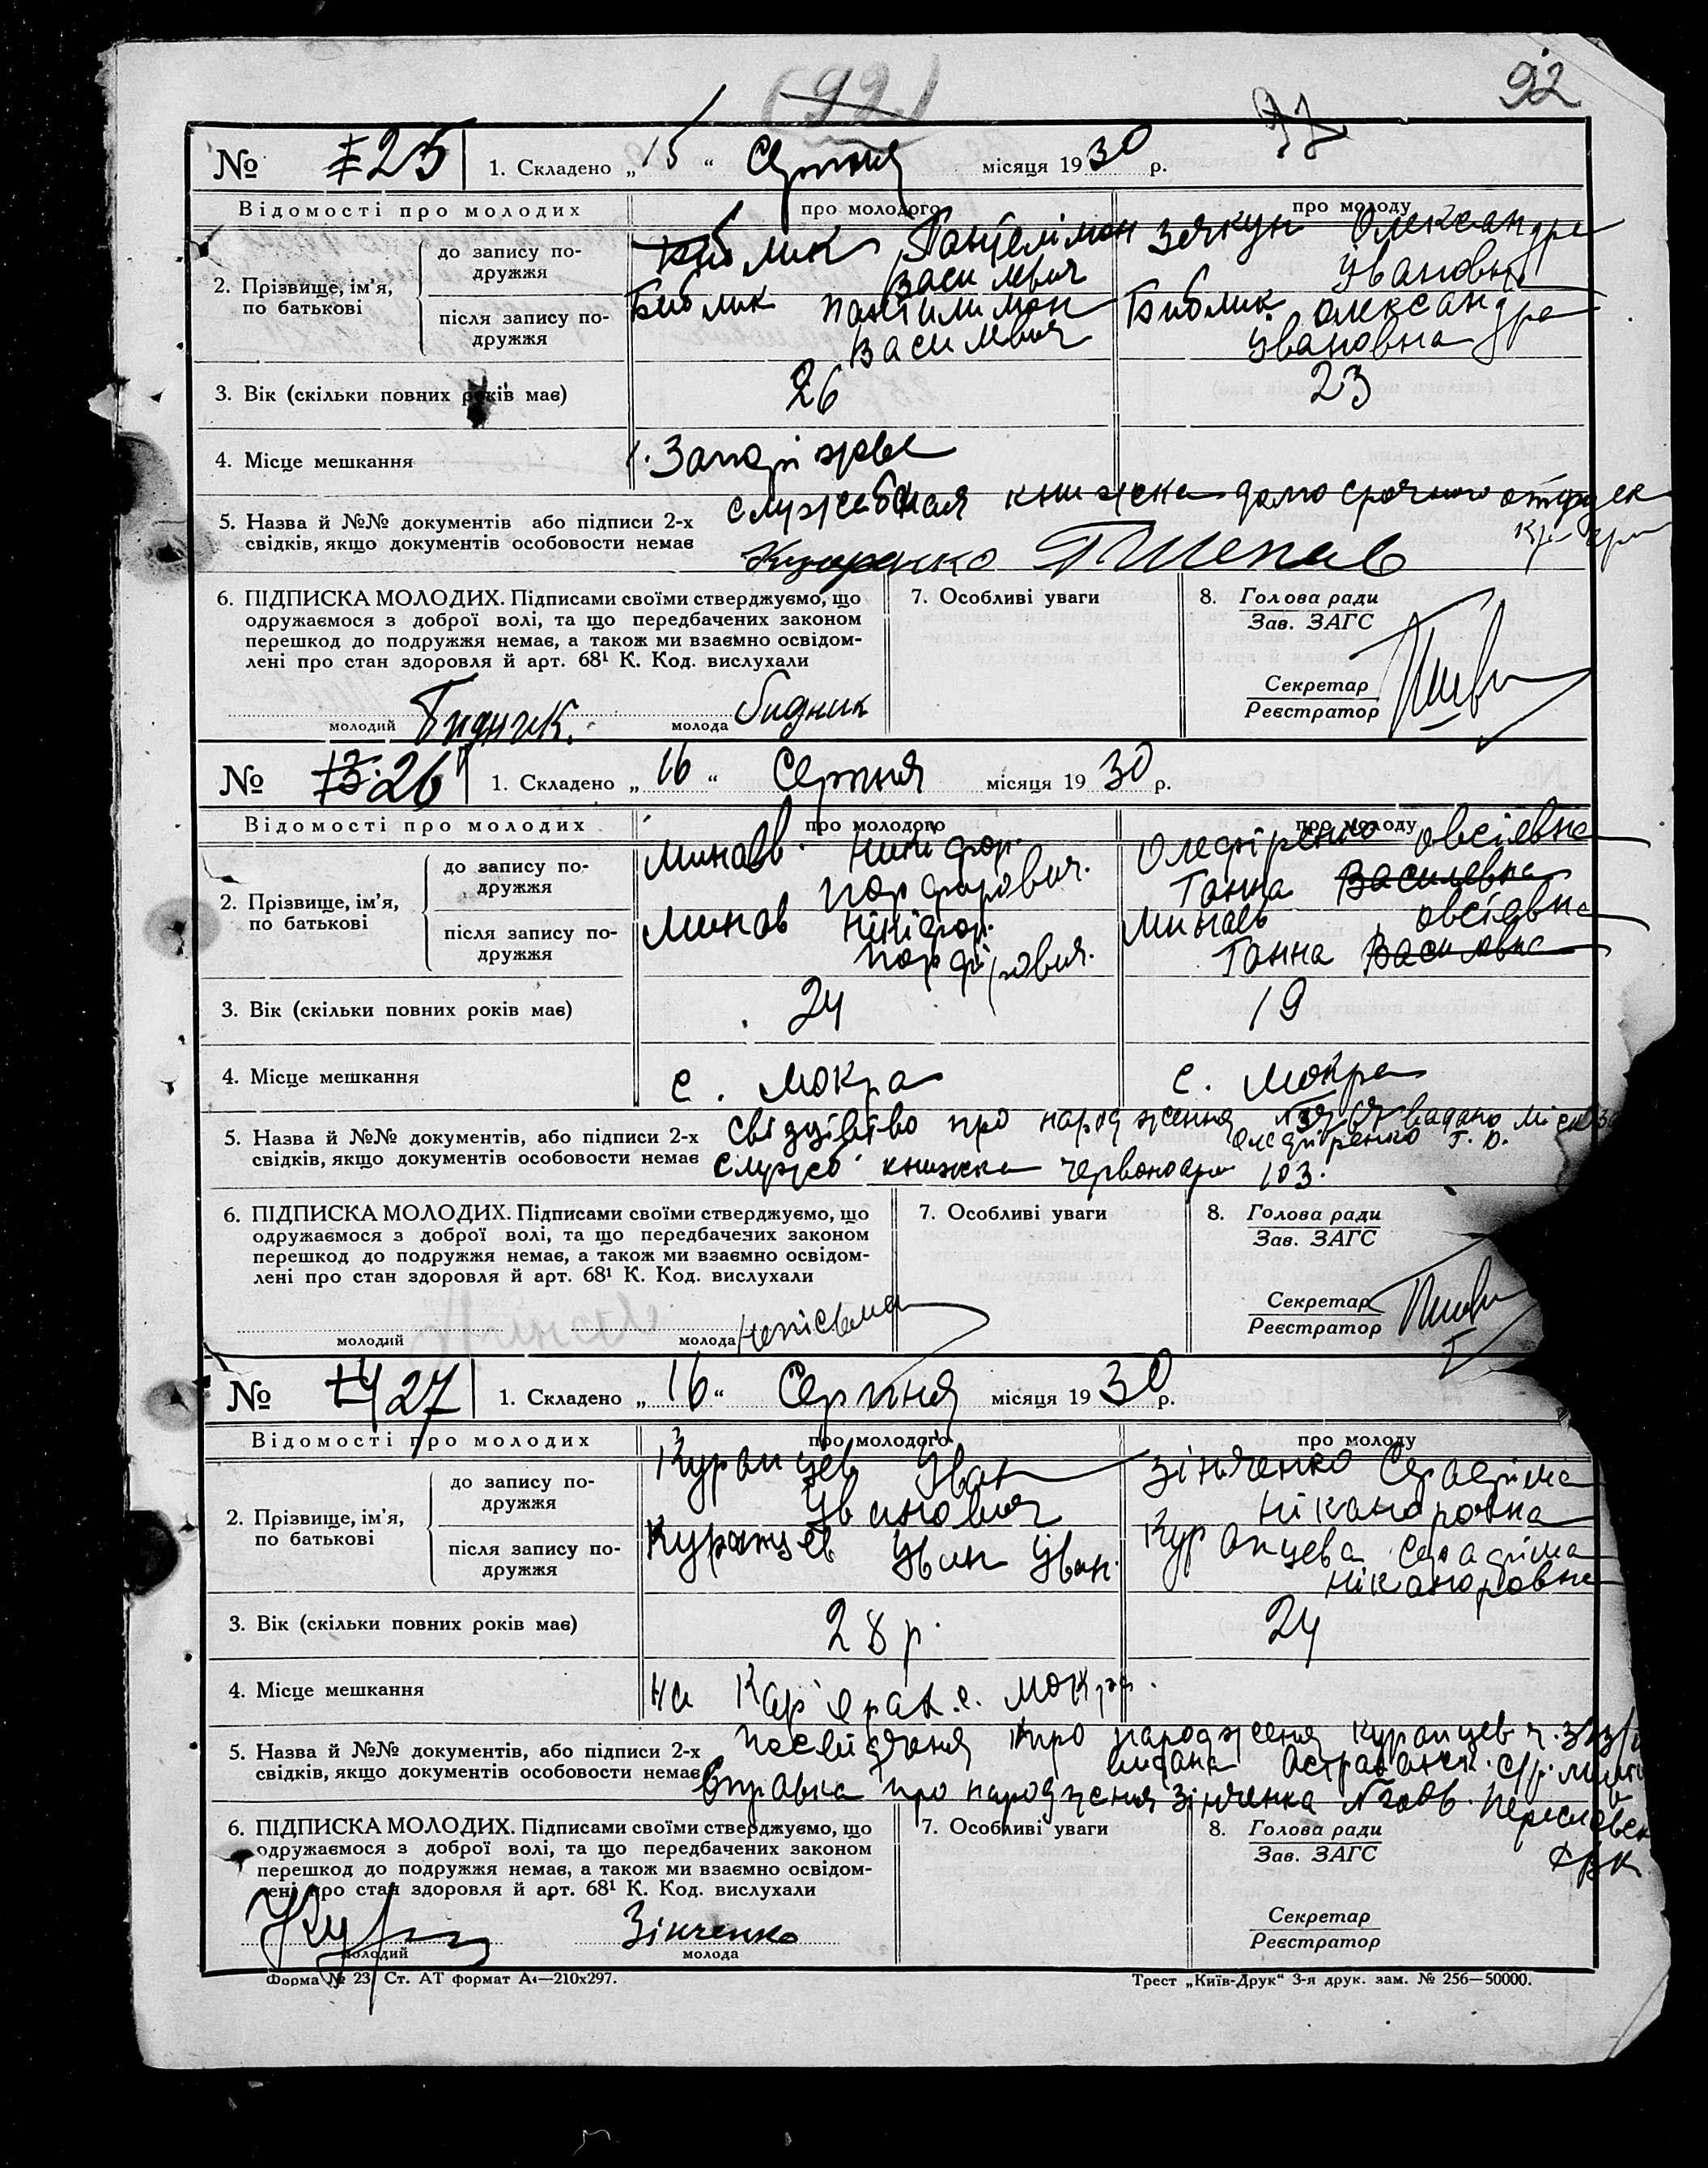 (92)
92
№ 25 1. Складено „ 15 “ Серпня місяця 1930 р.
Відомості про молодих про молодого про молоду
2. Прізвище, ім’я, по батькові
до запису подружжя Пантелімон Зячкун Олександра
Василевич Івановна
після запису подружжя Библик Пантилимон Библик Олександра
Василевич Івановна
3. Вік (скільки повних років має) 26 23
4. Місце мешкання Запоріжжя
5. Назва й №№ документів або підписи 2-х служебная книжка долгосрочного
свідків, якщо документів особовости немає
6. ПІДПИСКА МОЛОДИХ. Підписами своїми стверджуємо, що
одружаємося з доброї волі, та що передбачених законом
перешкод до подружжя немає, а також ми взаємно освідом-
лені про стан здоровля й арт. 68¹ К. Код. вислухали
молодий молода
7. Особливі уваги
8. Голова ради
Зав. ЗАГС
Секретар
Реєстратор
№ 26 1. Складено „ 16 “ Серпня місяця 1930 р.
Відомості про молодих про молодого про молоду
2. Прізвище, ім’я, по батькові
до запису по-
дружжя
Минаєв Никіфор Олефіренко Овсіевна
Порфирович. Ганна Василевна
після запису по-
дружжя
Минаєв Нікіфор Минаєв Овсіевна
Порфірович. Ганна Василевна
3. Вік (скільки повних років має) 24 19
4. Місце мешкання с. Мокра с. Мокра
5. Назва й №№ документів, або підписи 2-х Свідоцтво про народження видано
Олефіренко Г. О.
свідків, якщо документів особовости немає Служб книжка червоноарм 103.
6. ПІДПИСКА МОЛОДИХ. Підписами своїми стверджуємо, що
одружаємося з доброї волі, та що передбачених законом
перешкод до подружжя немає, а також ми взаємно освідом-
лені про стан здоровля й арт. 68¹ К. Код. вислухали
молодий молода
7. Особливі уваги
8. Голова ради
Зав. ЗАГС
Секретар
Реєстратор
№ 27 1. Складено „ 16 “ Серпня місяця 1930 р.
Відомості про молодих про молодого про молоду
2. Прізвище, ім’я, по батькові
до запису по-
дружжя
Куранцев Іван Зінченко Серафіма
Іванович Ніканоровна
після запису по-
дружжя
Куранцев Іван Іван. Куранцева Серафіма
Ніканоровна
3. Вік (скільки повних років має) 28 р. 24
4. Місце мешкання на Кар'єрах с. Мокра.
5. Назва й №№ документів, або підписи 2-х про народження Куранцев
видана
свідків, якщо документів особовости немає Справка про народження Зінченка
6. ПІДПИСКА МОЛОДИХ. Підписами своїми стверджуємо, що
одружаємося з доброї волі, та що передбачених законом
перешкод до подружжя немає, а також ми взаємно освідом-
лені про стан здоровля й арт. 68¹ К. Код. вислухали
Зінченко
молодий молода
7. Особливі уваги
8. Голова ради
Зав. ЗАГС
Секретар
Реєстратор
Форма № 23 Ст. АТ формат А4—210х297. Трест „Київ-Друк“ 3-я друк. зам. № 256—50000.